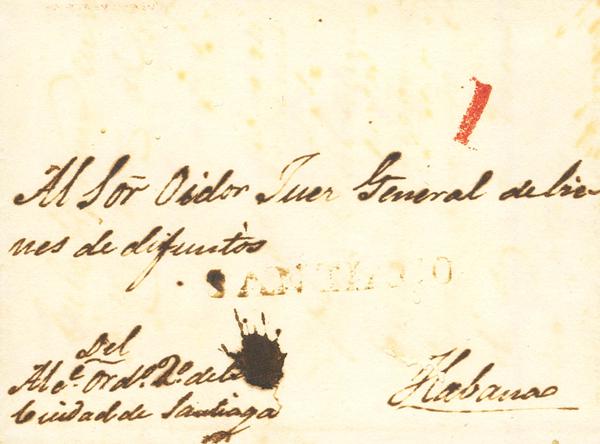 Al Sor̃ Oidor Juez General de bie-
nes de difuntos
Del
Alc.e Ord.o 2.o de la
Ciudad de Santiago
Habana